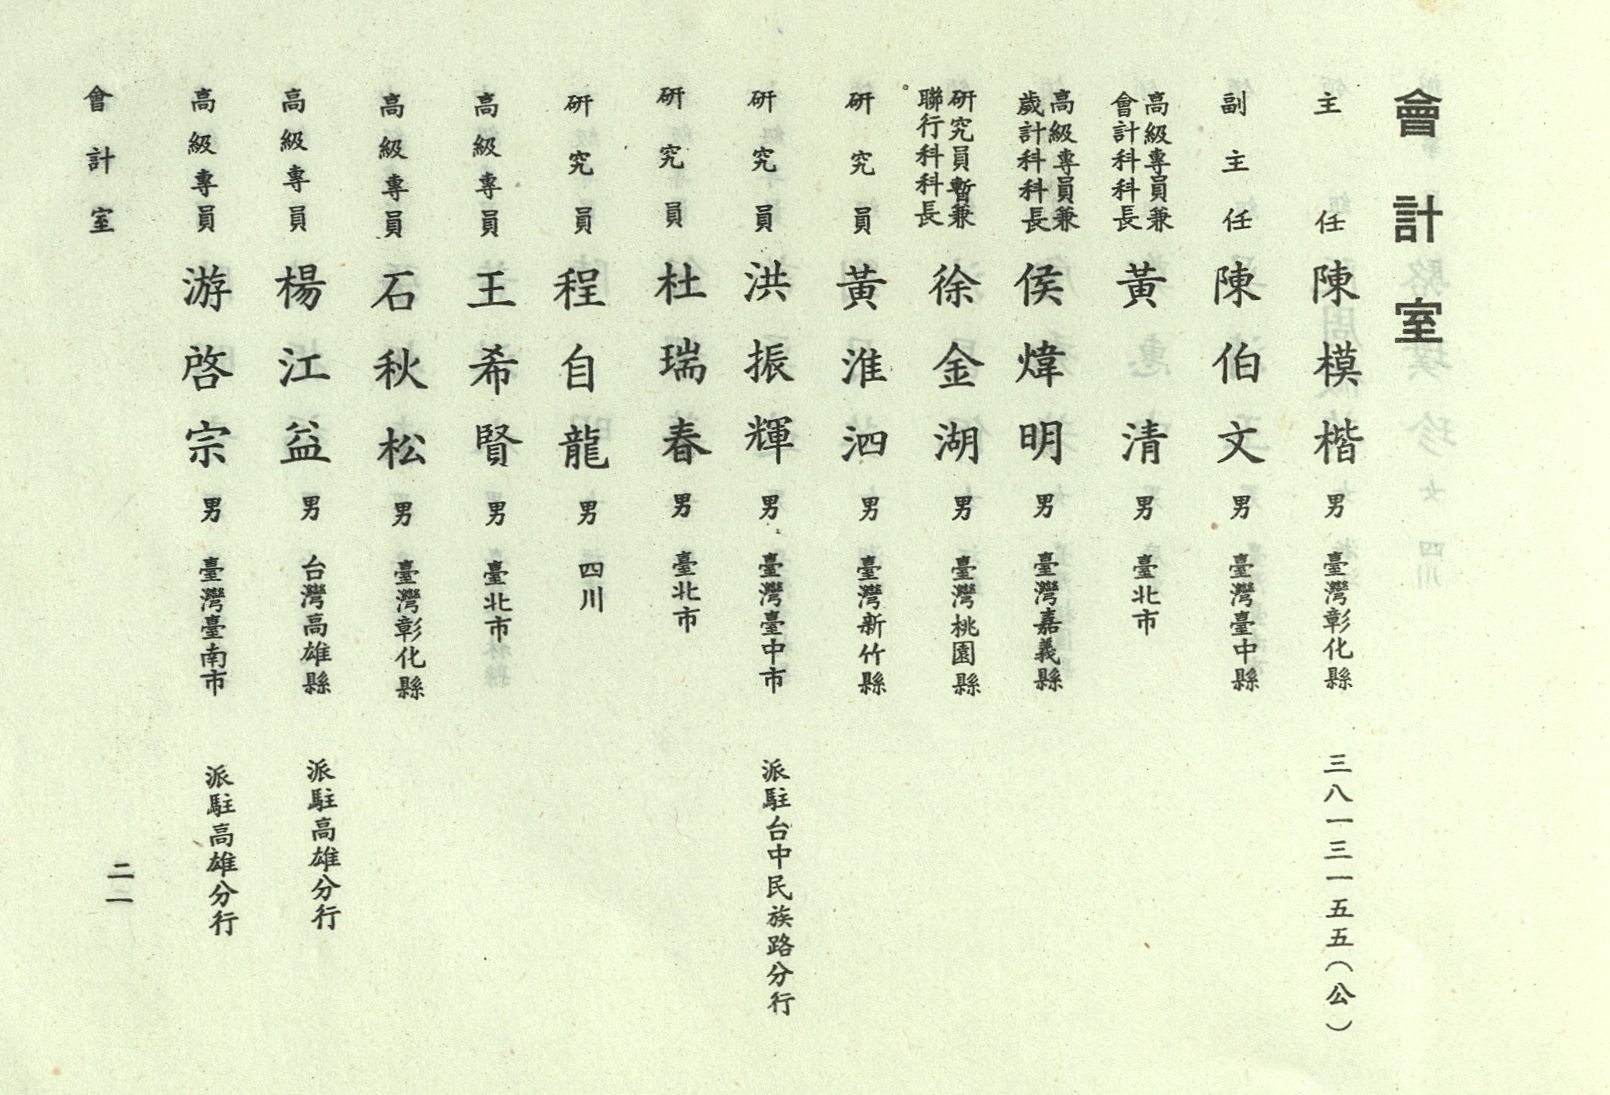 會計室
主任 陳模楷 男 臺灣彰化縣 三八一三一五五(公)
副主任 陳伯文 男 臺灣臺中縣
高級專員兼會計科科長 黃清 男 臺北市
高級專員兼歲計科科長 侯煒明 男 臺灣嘉義縣
研究員暫兼聯行科科長 徐金湖 男 臺灣桃園縣
研究員 黃淮泗 男 臺灣新竹縣
研究員 洪振輝 男 臺灣臺中市 派駐台中民族路分行
研究員 杜瑞春 男 臺北市
研究員 程自龍 男 四川
高級專員 王希賢 男 臺北市
高級專員 石秋松 男 臺灣彰化縣
高級專員 楊江益 男 台灣高雄縣 派駐高雄分行
高級專員 游啓宗 男 臺灣臺南市 派駐高雄分行
會計室 二一